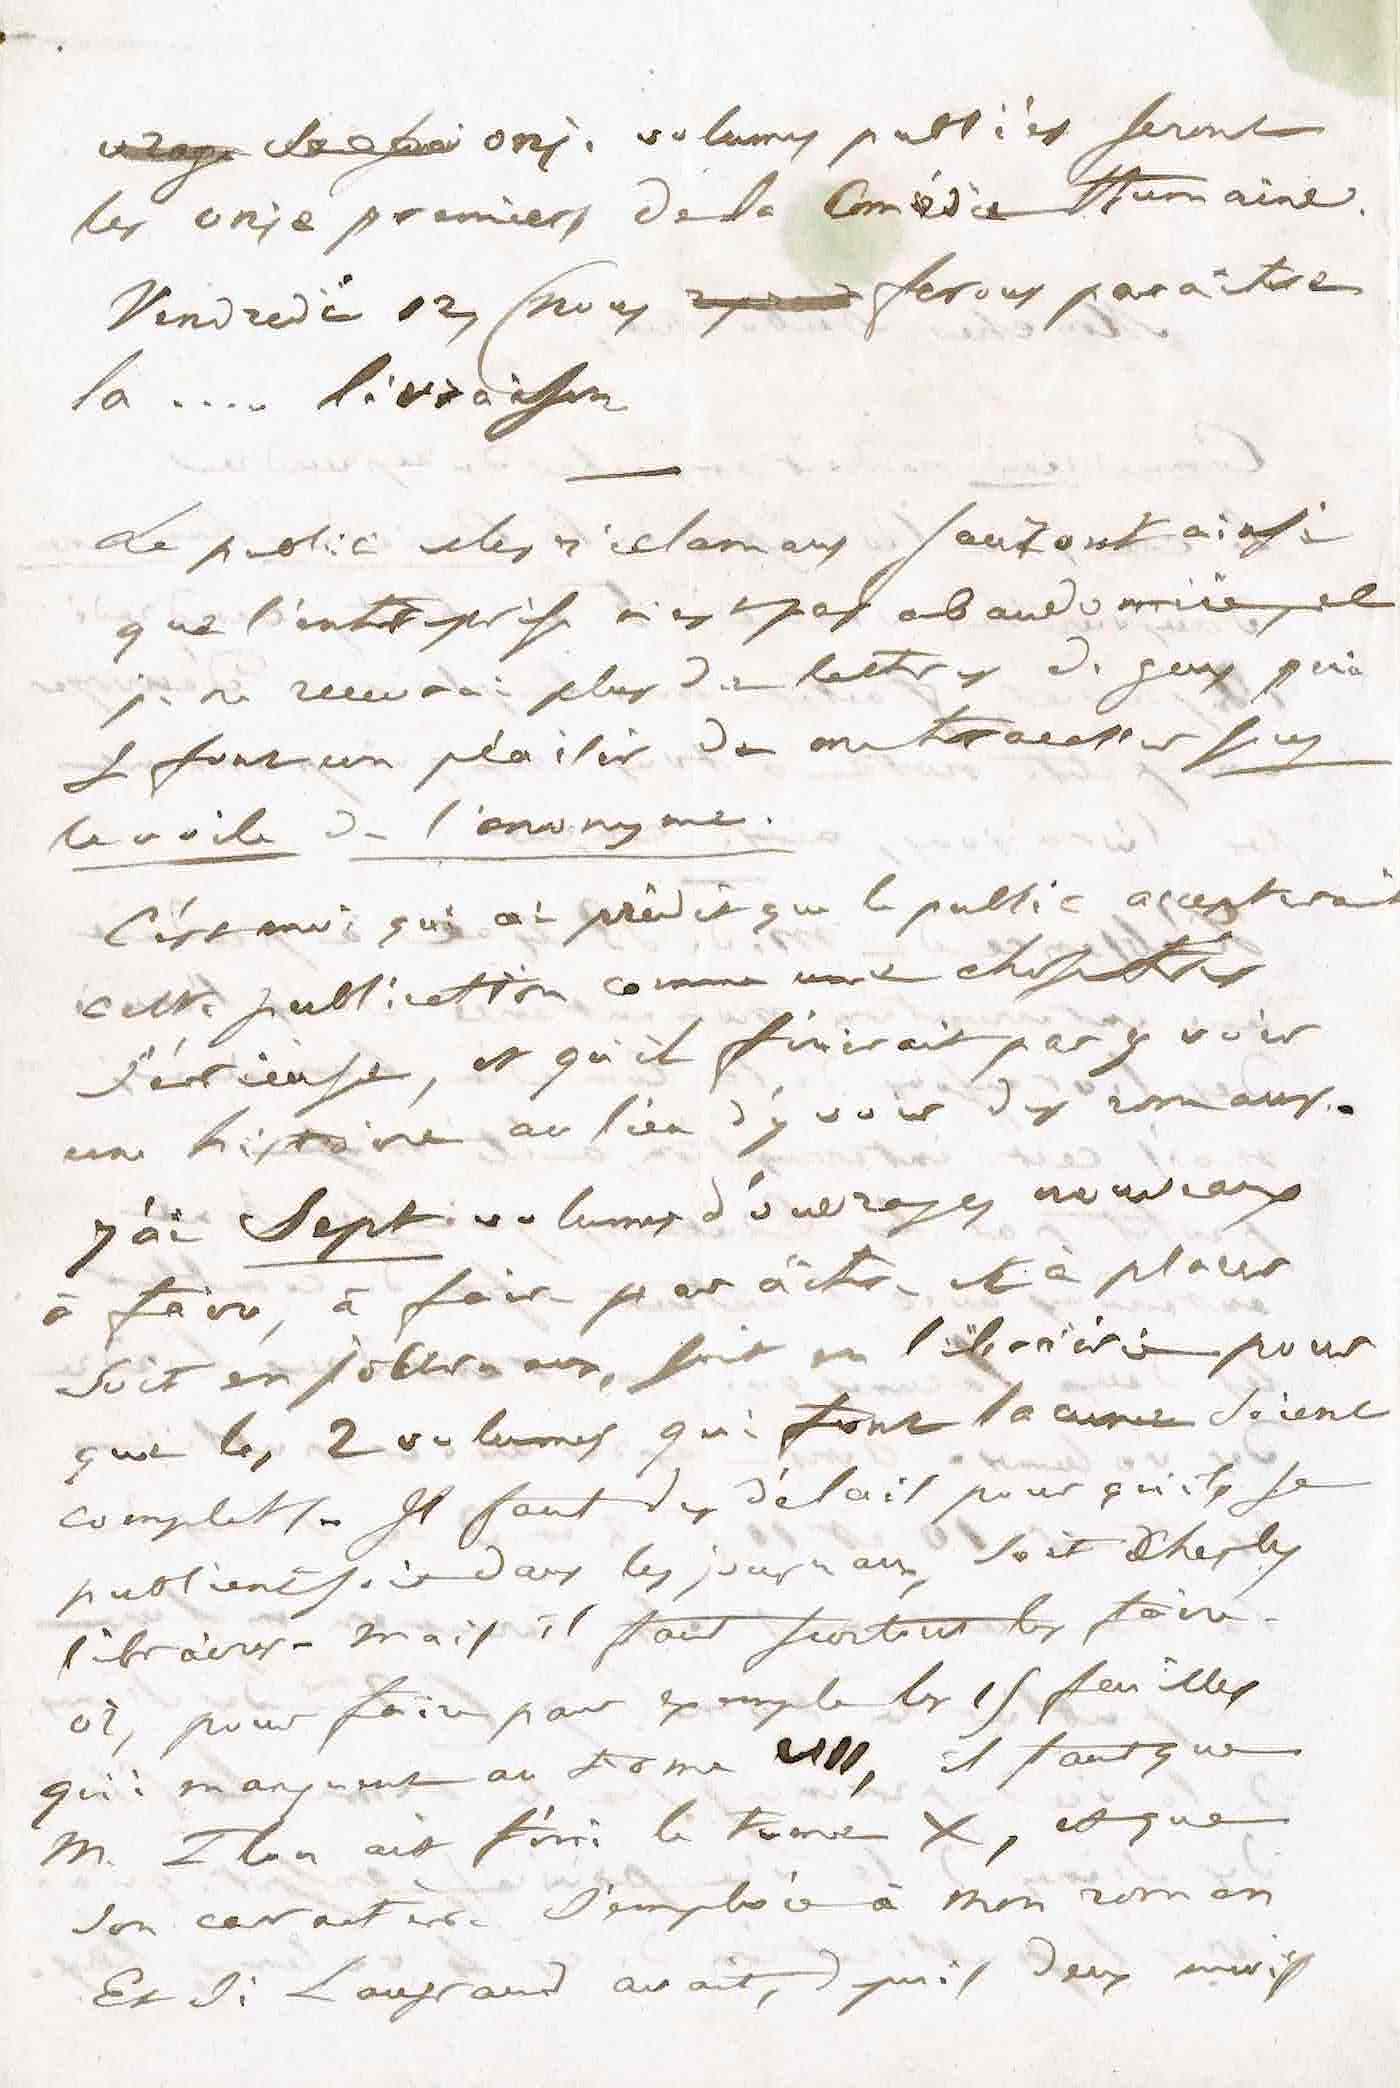 onze volumes publiés seront
les onze premiers de la Comédie Humaine.
Vendredi nous ferons paraître
la .... livraison
Le public et les réclamans sauront ainsi
que l'entreprise n'est pas abandonnée, et
je ne recevrai plus de lettres de gens qui
se font un plaisir de me tracasser sous
le voile de l'anonyme.
C'est moi qui ai prédit que le public accepterait
cette publication comme une chose très
sérieuse, et qu'il finirait par y voir
une histoire au lieu d'y voir des romans.
J'ai Sept volumes d'ouvrages nouveaux
à faire, à faire paraître et à placer
soit en journaux, soit en librairie pour
que les 2 volumes qui font lacune soient
complets. Il faut des délais pour qu'ils se
publient soit dans les journaux, soit chez les
libraires. mais il faut surtout les faire.
or, pour faire par exemple les 15 feuilles
qui manquent au tome VIII, il faut que
M. Plon ait fini le tome X, et que
son caractère s'emploie à mon roman
Et si Laugrand avait, depuis deux mois